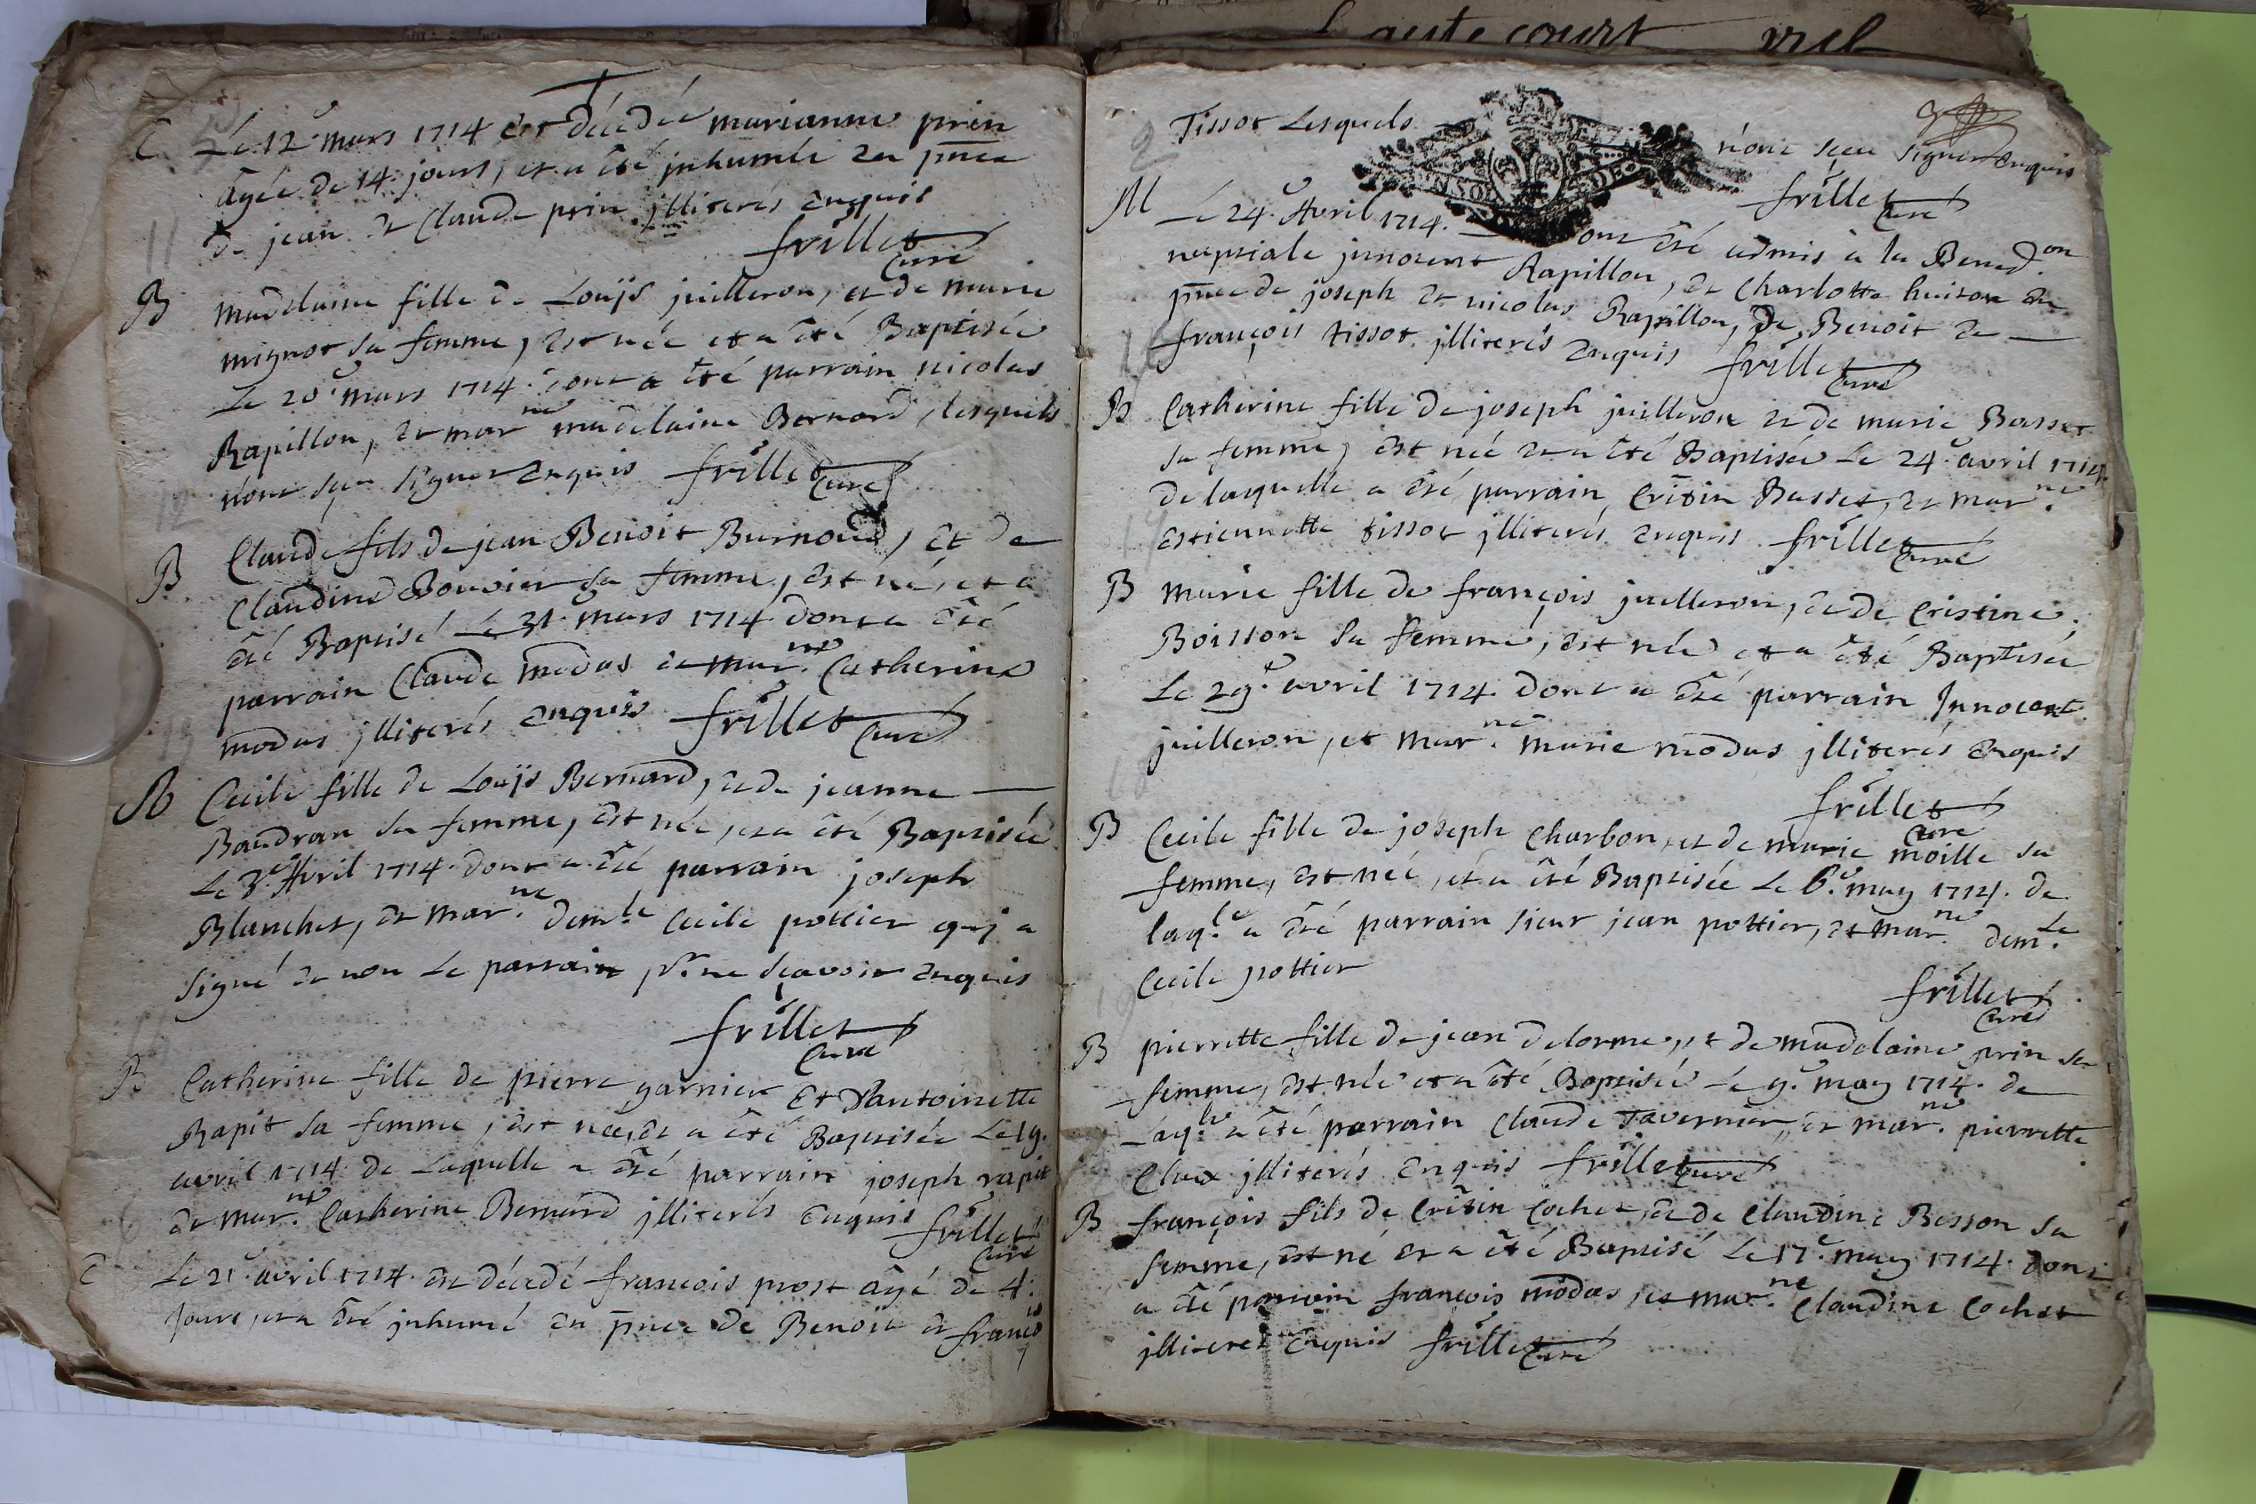 C Le 12e mars 1714 est décédée marianne prin
âgée de 14 jours, et a été jnhumée en pnce
de jean et Claude prin jlliterés enquis
frillet
Curé
B madelaine fille de Louÿs juilleron, et de marie
mignot sa femme, est née et a été Baptisée
Le 20e mars 1714. dont a été parrain nicolas
Rapillon, et marne madelaine Bernard, lesquels
n'ont sçeu signer enquis frillet Curé
B Claude fils de jean Benoit Burnoud, et de
Claudine Bouvier sa femme, est né, et a
été Baptisé Le 31e mars 1714 dont a été
parrain Claude modas et marne Catherine
modas jlliterés enquis frillet Curé
B Cecile fille de Louÿs Bernard, et de jeanne
Baudran sa femme, est née, et a été Baptisée
Le 3e Avril 1714. dont a été parrain joseph
Blanchet, et marne demle Cecile pottier qui a
signé et non Le parrain pr ne sçavoir enquis
frillet
Curé
B Catherine fille de pierre garnier Et D'antoinette
Rapit sa femme, est née, et a été Baptisée Le 19.
avril 1714. de Laquelle a été parrain joseph rapit
et marne Catherine Bernard jlliterés enquis frillet
Curé
C Le 21e avril 1714. est décédé françois prost âgé de 4
jours, et a été jnhumé en pnce de Benoit et francois
hautecourt
Tissot Lesquels n'ont sçeu signer enquis
frillet
Curé
M Le 24e Avril 1714. ont été admis à la Benedon
nuptiale jnnocent Rapillon, et Charlotte huison en
pnce de joseph et nicolas Rapillon, de Benoit et
françois tissot jlliterés enquis frillet
Curé
B Catherine fille de joseph juilleron et de marie Basset
sa femme, est née et a été Baptisée Le 24e avril 1714.
de laquelle a été parrain Cristin Basset, et marne
estiennette tissot jlliterés enquis frillet
Curé
B marie fille de françois juilleron, et de Cristine
Boisson sa femme, est née et a été Baptisée
Le 29e avril 1714. dont a été parrain Jnnocent
juilleron, et marne marie modas jlliterés enquis
frillet
Curé
B Cecile fille de joseph Charbon, et de marie moille sa
femme, est née, et a été Baptisée Le 6e may 1714. de
laqle a été parrain sieur jean pottier, et marne demle
Cecile pottier
frillet
Curé
B pierrette fille de jean delorme, et de madelaine prin sa
femme, est née et a été Baptisée Le 9e may 1714. de
Laqle a été parrain Claude Tavernier, et marne pierrette
Claux jlliterés enquis frillet Curé
B françois fils de Cristin Cochet, et de Claudine Besson sa
femme, est né et a été Baptisé Le 17e may 1714. dont
a été parrain françois modas, et marne Claudine Cochet
jlliteres enquis frillet Curé